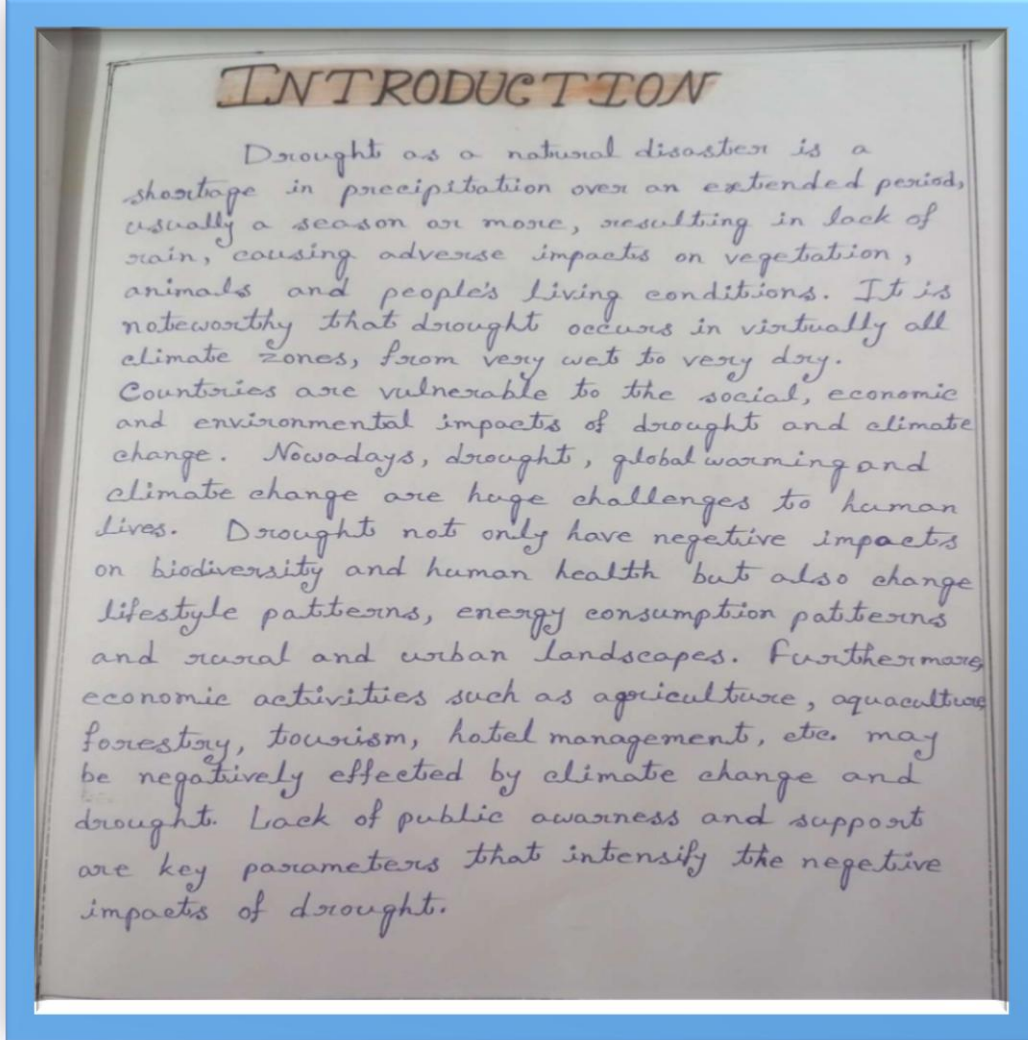 INTRODUCTION
Drought as a natural disaster is a
shortage in precipitation over an extended period,
usually a season or more, resulting in lack of
rain, causing adverse impacts on vegetation,
animals and people's living conditions. It is
noteworthy that drought occurs in virtually all
climate zones, from very wet to very dry.
Countries are vulnerable to the social, economic
and environmental impacts of drought and climate
change. Nowadays, drought, global warming and
climate change are huge challenges to human
lives. Drought not only have negetive impacts
on biodiversity and human health but also change
lifestyle patterns, energy consumption patterns
and rural and urban landscapes. Furthermore,
economic activities such as agriculture, aquaculture,
forestry, tourism, hotel management, etc. may
be negatively effected by climate change and
drought. Lack of public awarness and support
are key parameters that intensify the negetive
impacts of drought.